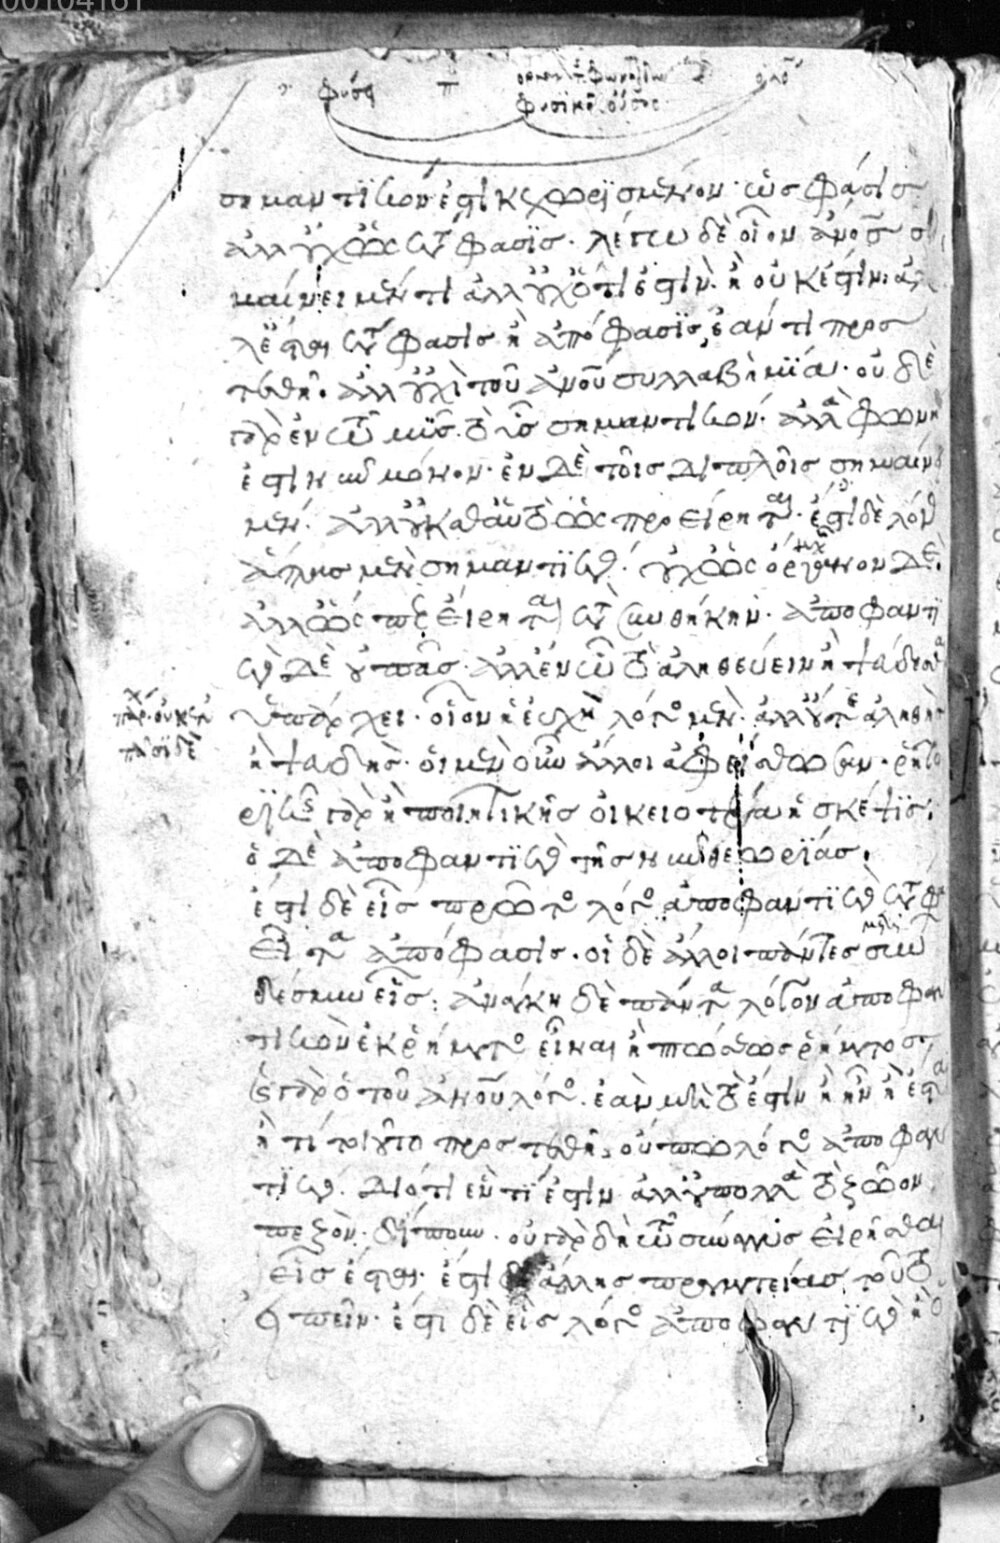 00104161
φύσει
φυσικῆς
σημαντικόν ἐστι κεχωρισμένον· ὡς φάσις
ἀλλ' οὐχ ὡς κατάφασις· λέγω δὲ οἷον ἄνθρωπος ση
μαίνει μέν τι ἀλλ' οὐχ ὅτι ἔστιν· ἢ οὐκ ἔστιν· ἀλ
λ' ἔσται κατάφασις ἢ ἀπόφασις, ἐάν τι προσ
τεθῆ· ἀλλ' οὐχὶ τοῦ ἀνθρώπου συλλαβὴ μία· οὐδὲ
γὰρ ἐν τῶ μῦς τὸ ῦς σημαντικόν· ἀλλὰ φωνή
ἐστι νῦν μόνον· ἐν δὲ τοῖς διπλοῖς σημαίνει
μέν· ἀλλ' οὐ καθ' αὑτὸ ὡς προείρηται· ἔστι δὲ λόγος
ἅπας μὲν σημαντικός· οὐχ ὡς ὄργανον δέ·
ἀλλ' ὡς προείρηται κατὰ συνθήκην· ἀποφαντι
κὸς δὲ οὐ πᾶς· ἀλλ' ἐν ὧ τὸ ἀληθεύειν ἢ ψεύδεσθαι
ὑπάρχει· οἷον ἡ εὐχὴ λόγος μέν· ἀλλ' οὔτε ἀληθὴς
ἢ ψευδής· οἱ μὲν οὖν ἄλλοι ἀφείσθωσαν· ῥητο
ρικῆς γὰρ ἢ ποιητικῆς οἰκειοτέρα ἡ σκέψις·
ὁ δὲ ἀποφαντικὸς τῆς νῦν θεωρίας·
ἔστι δὲ εἷς πρῶτος λόγος ἀποφαντικὸς κατάφασις
εἶτα ἀπόφασις· οἱ δὲ ἄλλοι πάντες συν
δέσμω εἷς· ἀνάγκη δὲ πάντα λόγον ἀποφαν
τικὸν ἐκ ῥήματος εἶναι ἢ πτώσεως ῥήματος·
καὶ γὰρ ὁ τοῦ ἀνθρώπου λόγος· ἐὰν μὴ τὸ ἔστιν ἢ ἦν ἢ ἔσται
ἤ τι τοιοῦτο προστεθῆ, οὔπω λόγος ἀποφαν
τικός· διότι ἕν τί ἐστιν ἀλλ' οὐ πολλὰ τὸ ζῶον
πεζὸν δίπουν· οὐ γὰρ δὴ τῶ σύνεγγυς εἰρῆσθαι
εἷς ἔσται· ἔστι δὲ ἄλλης πραγματείας τοῦτο
εἰπεῖν· ἔστι δὲ εἷς λόγος ἀποφαντικὸς ἢ ὁ